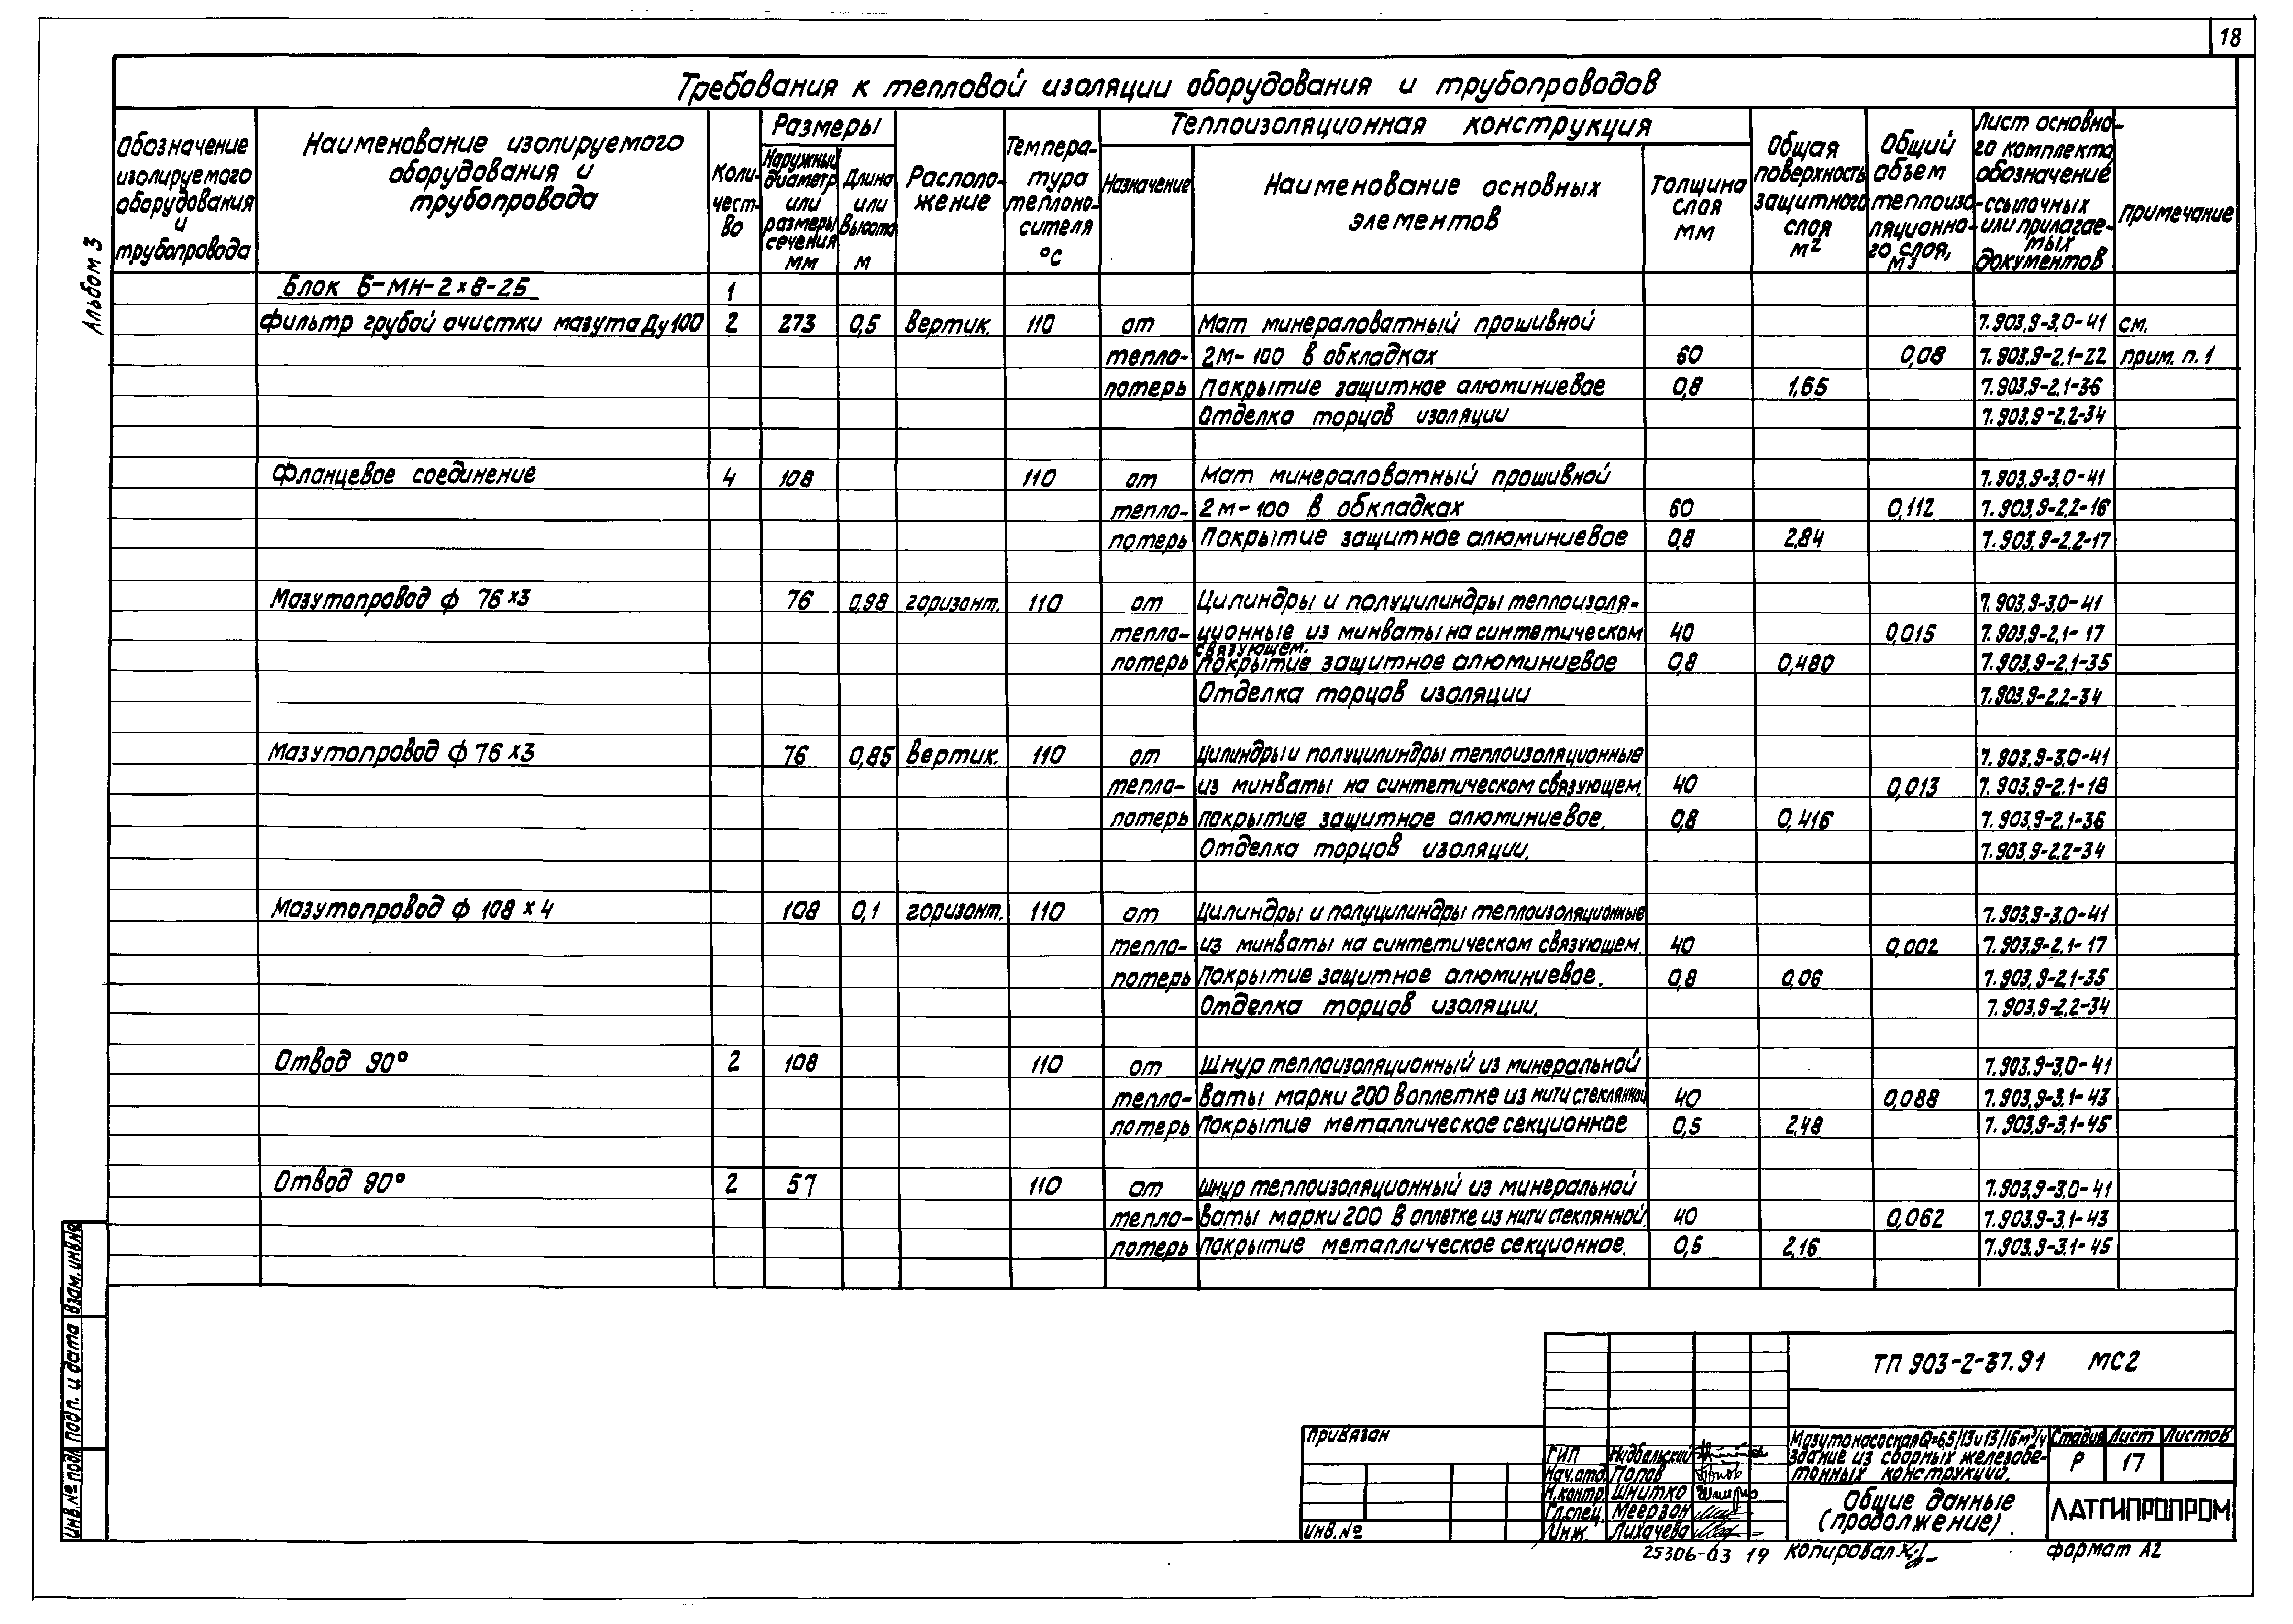 18
Альбом 3
Требования к тепловой изоляции оборудования и трубопроводов
Обозначение изолируемого оборудования и трубопровода
Наименование изолируемого оборудования и трубопровода
Коли-чест-во
Размеры
Наружный диаметр или размеры сечения мм
Длина или высота м
Располо-жение
Темпера-тура теплоно-сителя °С
Теплоизоляционная конструкция
Назначение
Наименование основных элементов
Толщина слоя мм
Общая поверхность защитного слоя м²
Общий объем теплоизо-ляционно-го слоя, м³
Лист основно-го комплекта обозначение ссылочных или прилагае-мых документов
Примечание
Блок Б-МН-2х8-25 1
Фильтр грубой очистки мазута Ду100 2 273 0,5 вертик. 110 от Мат минераловатный прошивной 7.903.9-3.0-41 см.
тепло- 2М-100 в обкладках 60 0,08 7.903.9-2.1-22 прим. п.1
потерь Покрытие защитное алюминиевое 0,8 1,65 7.903.9-2.1-36
Отделка торцов изоляции 7.903.9-2.2-34
Фланцевое соединение 4 108 110 от Мат минераловатный прошивной 7.903.9-3.0-41
тепло- 2м-100 в обкладках 60 0,112 7.903.9-2.2-16
потерь Покрытие защитное алюминиевое 0,8 2,84 7.903.9-2.2-17
Мазутопровод ф 76х3 76 0,98 горизонт. 110 от Цилиндры и полуцилиндры теплоизоля- 7.903.9-3.0-41
тепло- ционные из минваты на синтетическом 40 0,015 7.903.9-2.1-17
связующем.
потерь Покрытие защитное алюминиевое 0,8 0,480 7.903.9-2.1-35
Отделка торцов изоляции 7.903.9-2.2-34
Мазутопровод ф 76х3 76 0,85 вертик. 110 от Цилиндры и полуцилиндры теплоизоляционные 7.903.9-3.0-41
тепло- из минваты на синтетическом связующем. 40 0,013 7.903.9-2.1-18
потерь покрытие защитное алюминиевое. 0,8 0,416 7.903.9-2.1-36
Отделка торцов изоляции. 7.903.9-2.2-34
Мазутопровод ф 108 х 4 108 0,1 горизонт. 110 от Цилиндры и полуцилиндры теплоизоляционные 7.903.9-3.0-41
тепло- из минваты на синтетическом связующем. 40 0,002 7.903.9-2.1-17
потерь Покрытие защитное алюминиевое. 0,8 0,06 7.903.9-2.1-35
Отделка торцов изоляции. 7.903.9-2.2-34
Отвод 90° 2 108 110 от Шнур теплоизоляционный из минеральной 7.903.9-3.0-41
тепло- ваты марки 200 в оплетке из нити стеклянной 40 0,088 7.903.9-3.1-43
потерь Покрытие металлическое секционное 0,5 2,48 7.903.9-3.1-45
Отвод 90° 2 57 110 от Шнур теплоизоляционный из минеральной 7.903.9-3.0-41
тепло- ваты марки 200 в оплетке из нити стеклянной. 40 0,062 7.903.9-3.1-43
потерь Покрытие металлическое секционное. 0,5 2,16 7.903.9-3.1-45
Взам. инв.№
Подп. и дата
Инв.№ подл.
ТП 903-2-37.91 МС2
Привязан
Инв.№
ГИП Нидбальский
Нач.отд. Попов
Н.контр. Шнитко
Гл.спец. Меерзон
Инж. Лихачева
Мазутонасосная Q=6,5/13 и 13/16м³/ч
здание из сборных железобе-
тонных конструкций.
Стадия Лист Листов
Р 17
Общие данные
(продолжение).
ЛАТГИПРОПРОМ
25306-03 19 Копировал формат А2